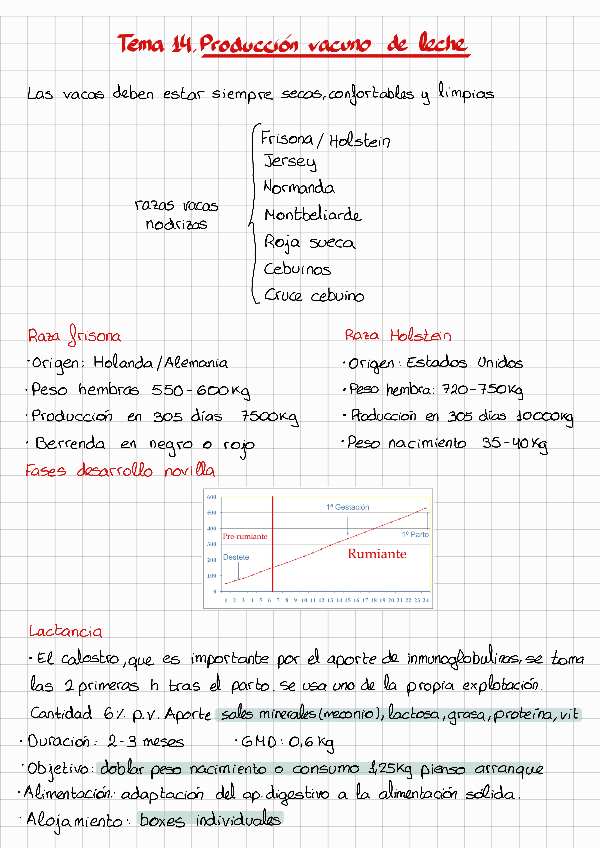 Tema 14. Producción vacuno de leche
Las vacas deben estar siempre secas, confortables y limpias
razas vacas nodrizas
Frisona / Holstein
Jersey
Normanda
Montbeliarde
Roja sueca
Cebuinas
Cruce cebuino
Raza frisona
· Origen: Holanda / Alemania
· Peso hembras 550-600kg
· Producción en 305 días 7500kg
· Berrenda en negro o rojo
Raza Holstein
· Origen: Estados Unidos
· Peso hembra: 720-750kg
· Producción en 305 días 10000kg
· Peso nacimiento 35-40kg
Fases desarrollo novilla
600
500
400
300
200
100
0
Pre-rumiante
Destete
1ª Gestación
1º Parto
Rumiante
1 2 3 4 5 6 7 8 9 10 11 12 13 14 15 16 17 18 19 20 21 22 23 24
Lactancia
· El calostro, que es importante por el aporte de inmunoglobulinas, se toma
las 2 primeras h tras el parto. se usa uno de la propia explotación.
Cantidad 6% p.v. Aporte sales minerales (meconio), lactosa, grasa, proteína, vit
· Duración: 2-3 meses · GMD: 0,6 kg
· Objetivo: doblar peso nacimiento o consumo 1,25kg pienso arranque
· Alimentación: adaptación del ap. digestivo a la alimentación sólida.
· Alojamiento: boxes individuales